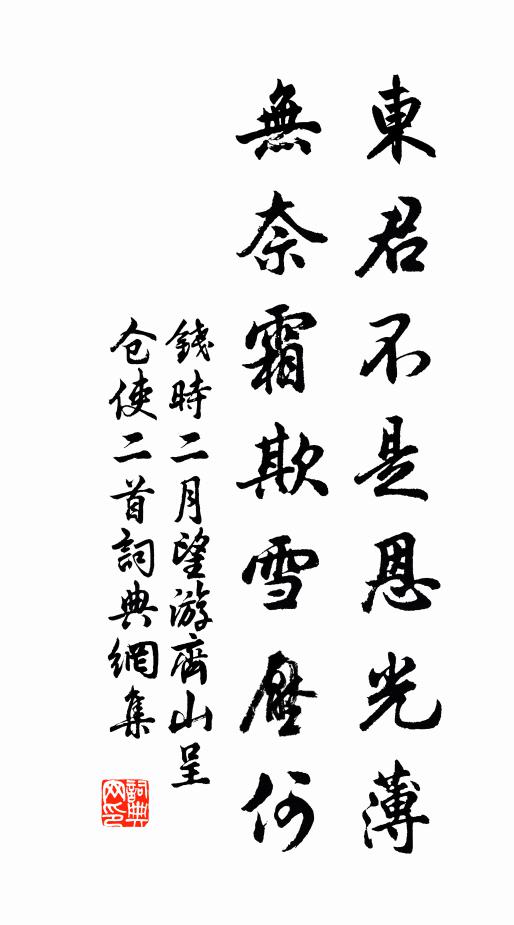 東君不是恩光薄
無奈霜欺雪壓何
錢時二月望游齊山呈
仓使二首詞典網集
詞典网印